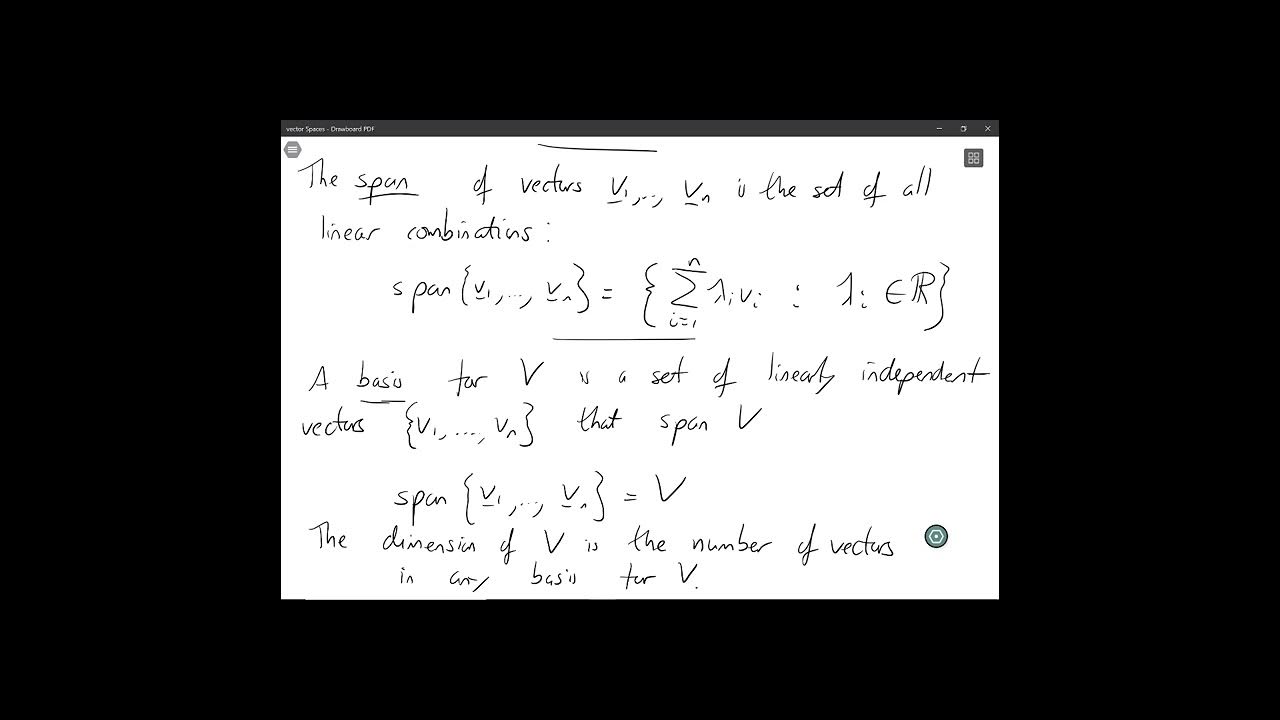 vector Spaces - Drawboard PDF
The span of vectors v₁,..., vₙ is the set of all
linear combinations:
span{v₁,..., vₙ} = { ∑ᵢ₌₁ⁿ λᵢvᵢ : λᵢ ∈ ℝ}
A basis for V is a set of linearly independent
vectors {v₁, ..., vₙ} that span V
span {v₁,..., vₙ} = V
The dimension of V is the number of vectors
in any basis for V.